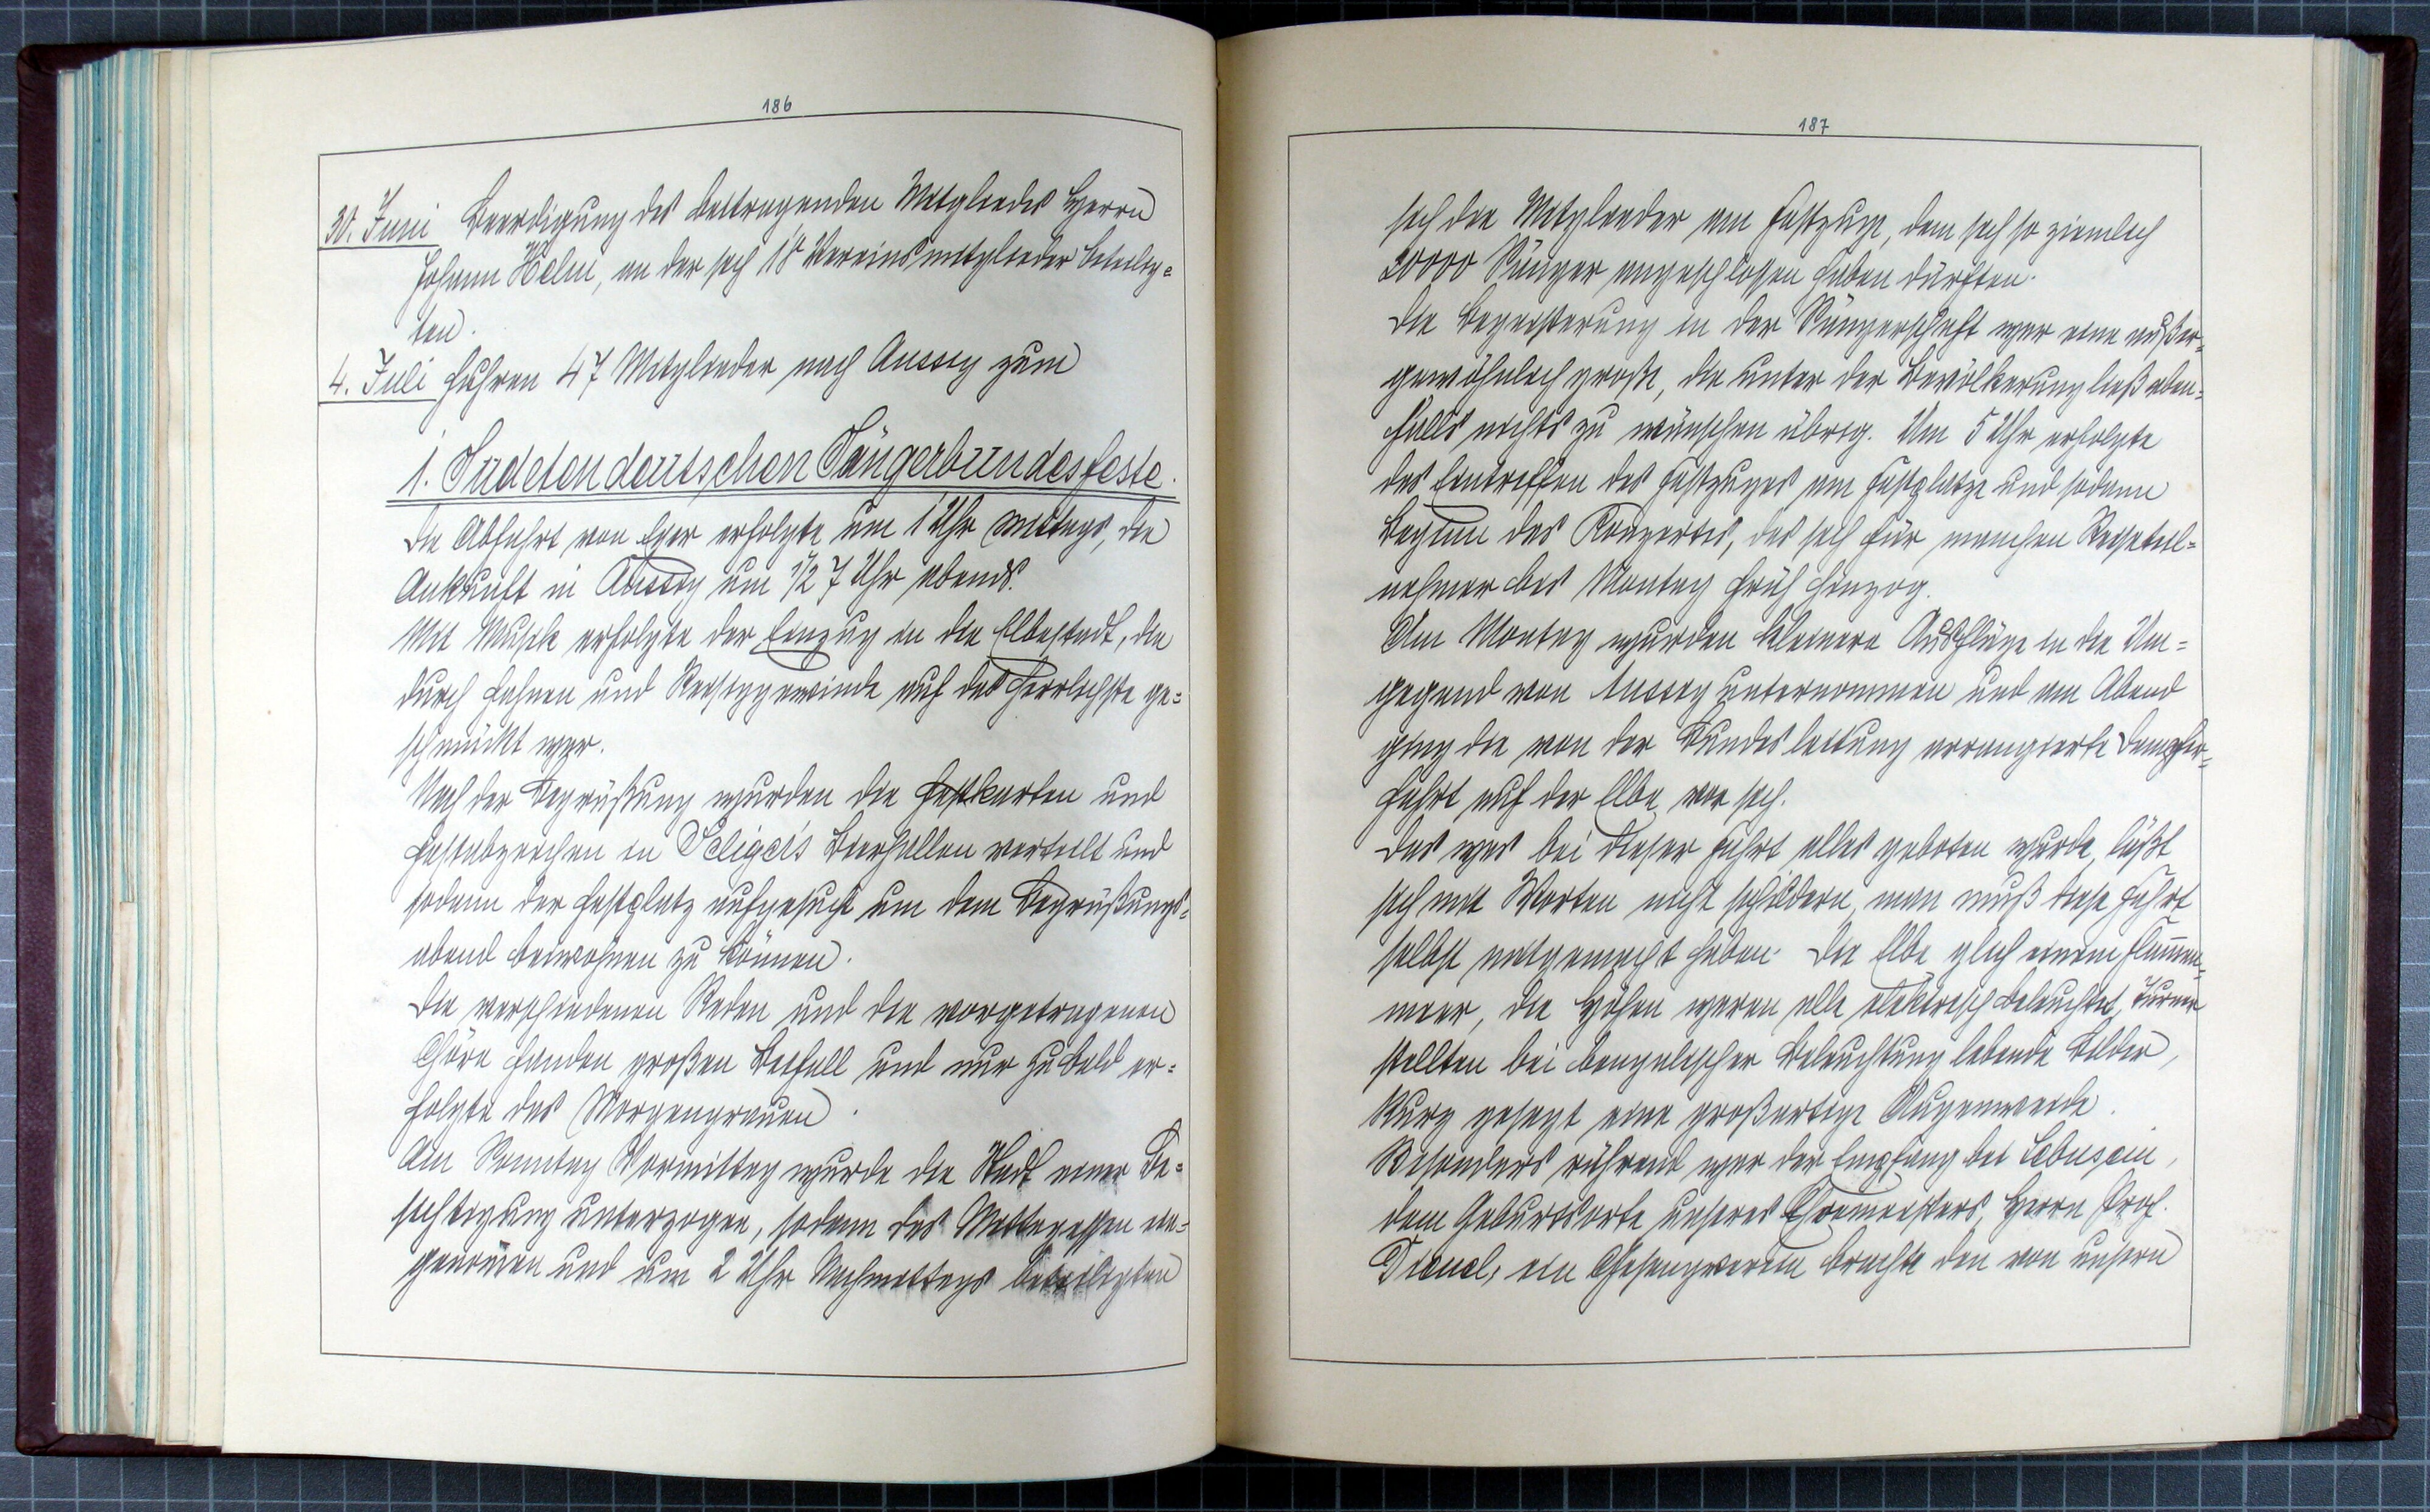 186
30. Juni Beerdigung des beitragenden Mitgliedes Herrn
Johann Helm, an der sich 18 Vereinsmitglieder beteilig=
ten.
4. Juli fuhren 47 Mitglieder nach Aussig zum
1. Sudetendeutschen Sängerbundesfeste.
Die Abfahrt von Eger erfolgte um 1 Uhr mittags, die
Ankunft in Aussig um ½ 7 Uhr abends.
Mit Musik erfolgte der Einzug in die Elbestadt, die
durch Fahnen und Reisiggewinde auf das herrlichste ge=
schmückt war.
Nach der Begrüßung wurden die Festkarten und
Festabzeichen in Seliger's Bierhallen verteilt und
sodann der Festplatz aufgesucht um dem Begrüßungs=
abend beiwohnen zu können.
Die verschiedenen Reden und die vorgetragenen
Chöre fanden großen Beifall und nur zu bald er=
folgte das Morgengrauen.
Am Sonntag Vormittag wurde die Stadt einer Be=
sichtigung unterzogen, sodann das Mittagessen ein=
genom̄en und um 2 Uhr Nachmittags beteiligten
187
sich die Mitglieder am Festzuge, dem sich so ziemlich
20000 Sänger angeschlossen haben dürften.
Die Begeisterung in der Sängerschaft war eine außer=
gewöhnlich große, die unter der Bevölkerung ließ eben=
falls nichts zu wünschen übrig. Um 5 Uhr erfolgte
das Eintreffen des Festzuges am Festplatze und sodann
Beginn des Konzertes, das sich für manchen Festteil=
nehmer bis Montag früh hinzog.
Am Montag wurden kleinere Ausflüge in die Um=
gegend von Aussig unternommen und am Abend
ging die von der Bundesleitung arrangierte Dampfer=
fahrt auf der Elbe vor sich.
Das was bei dieser Fahrt alles geboten wurde, läßt
sich mit Worten nicht schildern, man muß diese Fahrt
selbst mitgemacht haben. Die Elbe glich einem Flam̄en=
meer, die Höhen waren alle elektrisch beleuchtet, Turner
stellten bei bengalischer Beleuchtung lebende Bilder,
kurz gesagt eine großartige Augenweide.
Besonders rührend war der Empfang bei Sebusein,
dem Geburtsorte unseres Chormeisters, Herrn Prof.
Dienel, ein Gesangverein brachte den von unsern